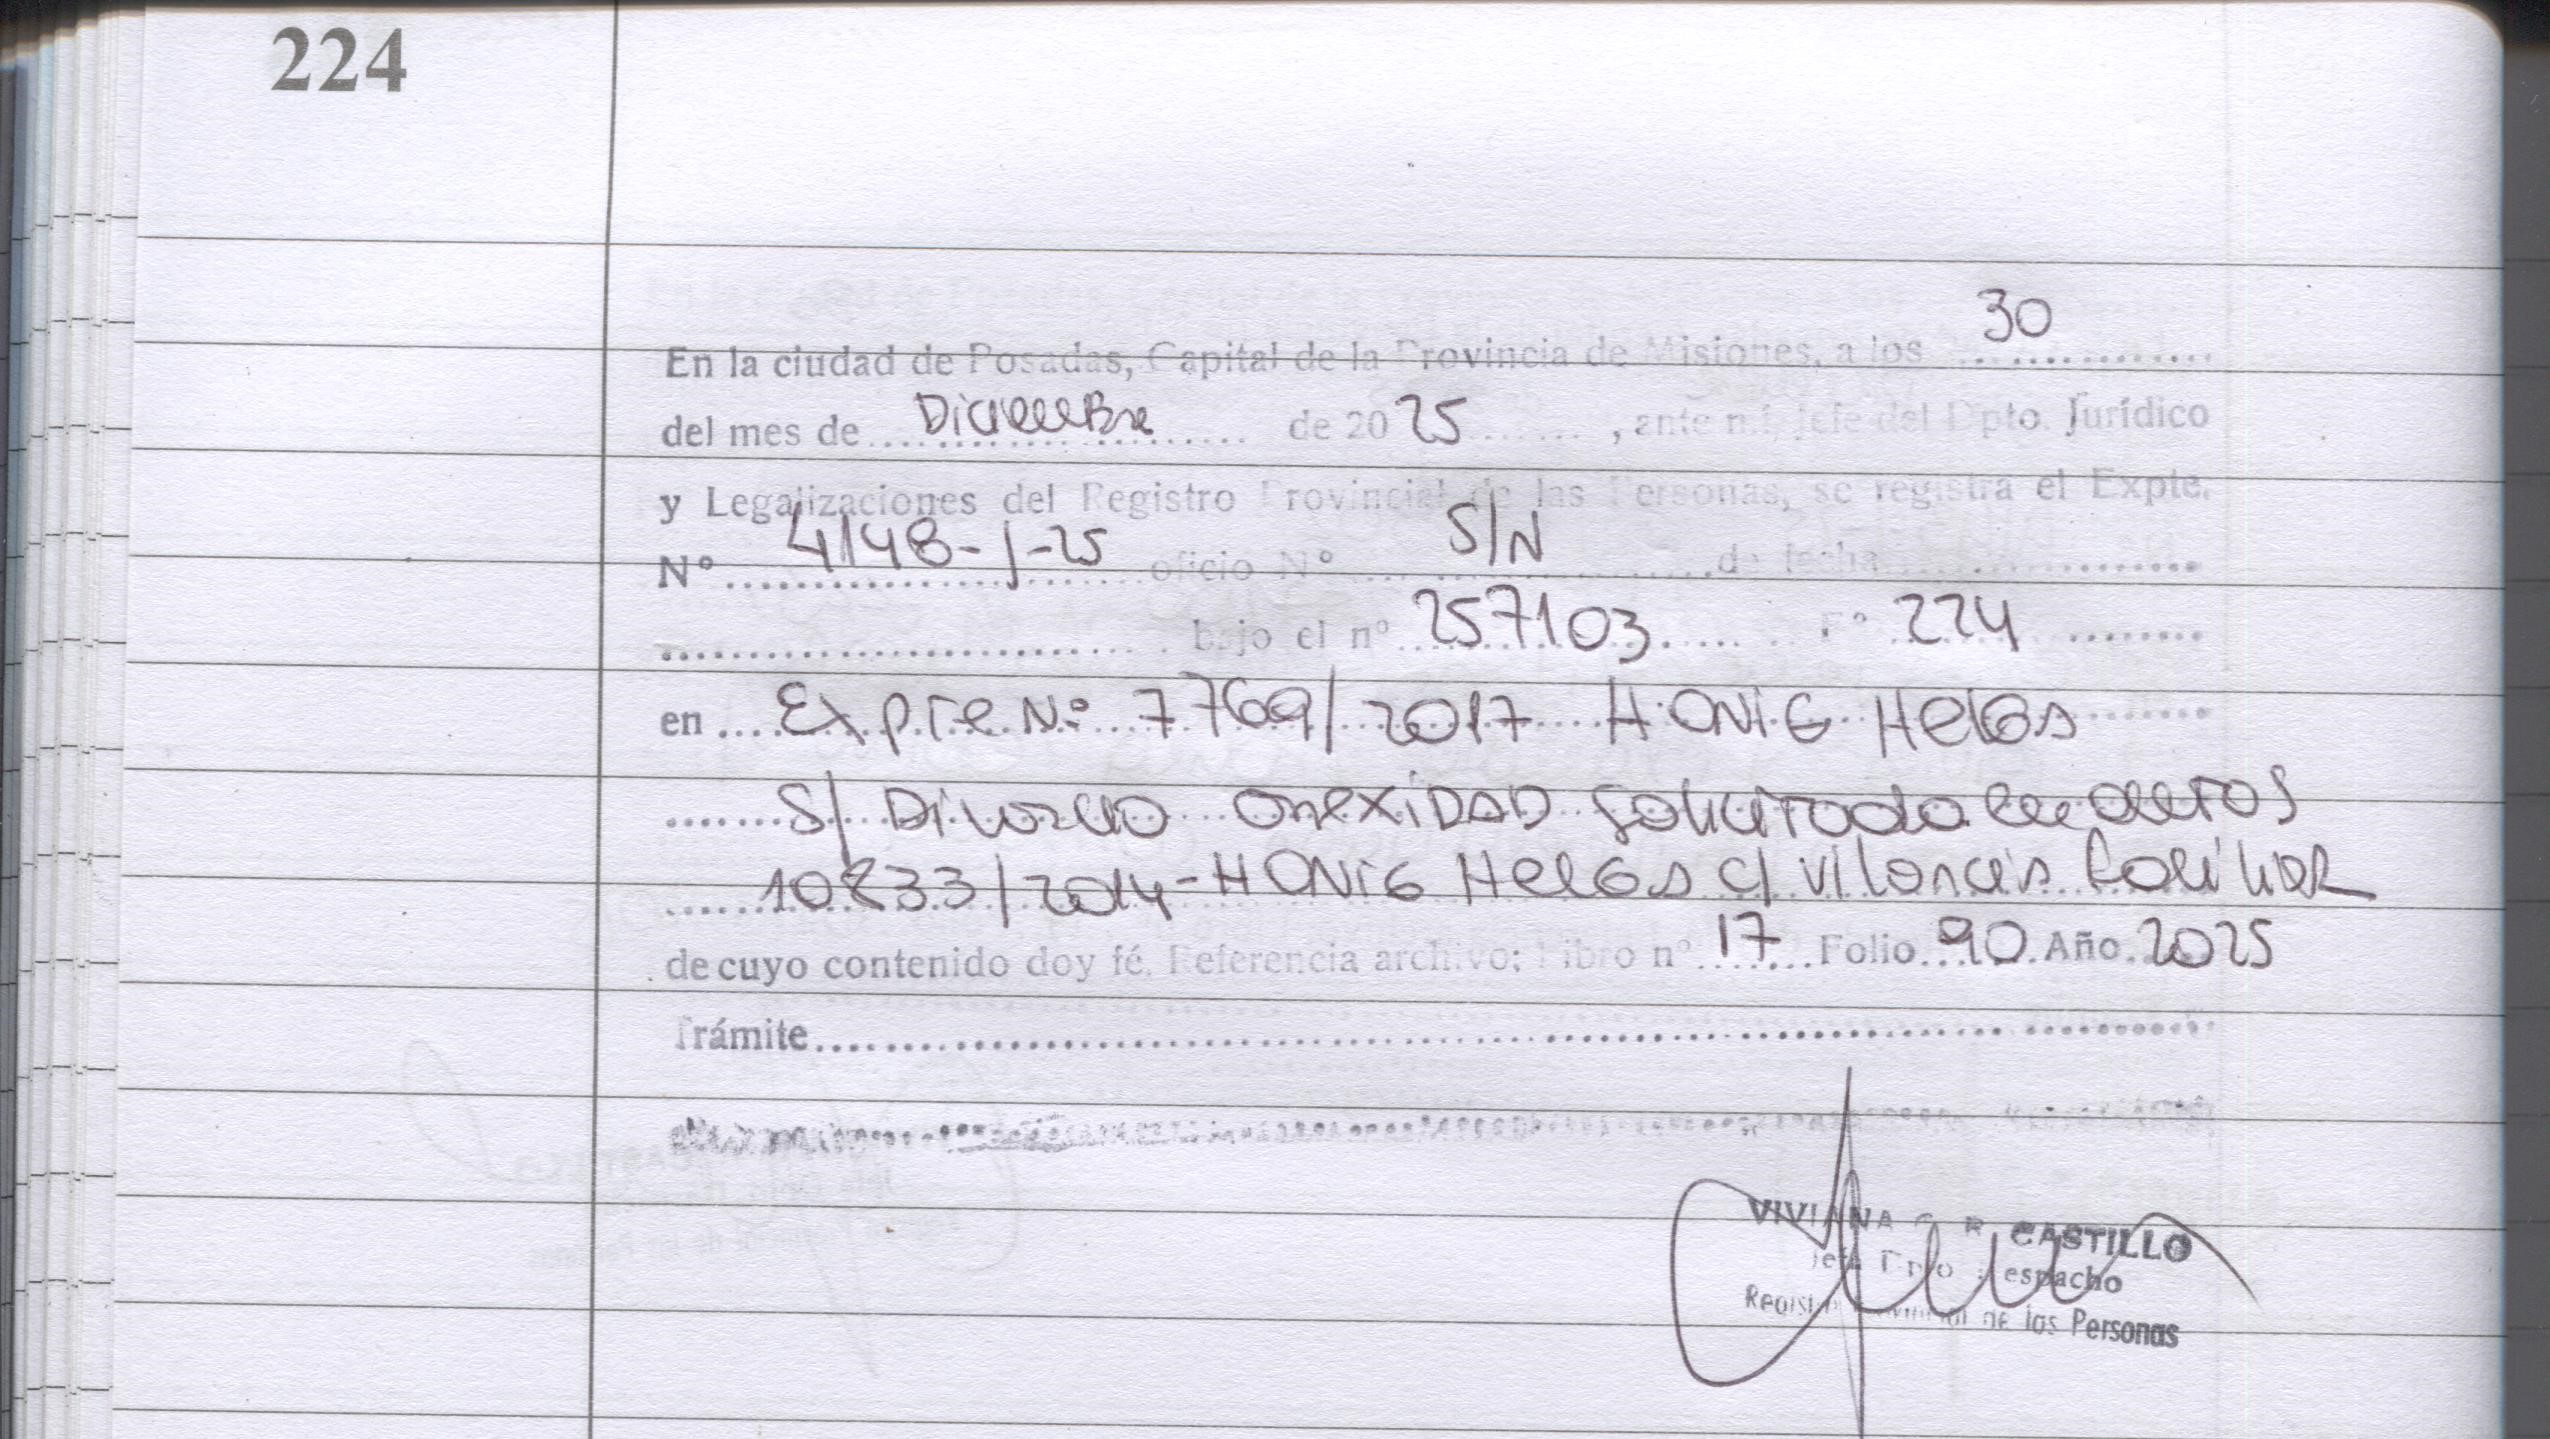 224
30
En la ciudad de Posadas, Capital de la Provincia de Misiones, a los ............
del mes de ... Diciembre ... de 20 25 ........ , ante mí, Jefe del Dpto. Jurídico
y Legalizaciones del Registro Provincial de las Personas, se registra el Expte.
Nº ... 4148-J-25 ... oficio Nº ... S/N ... de fecha ............
............ bajo el nº 257103 ...... Fº 224 ........
en .... Expte Nº: 7769/2017 HONIG Helga
S/ Divorcio conexidad solicitada en autos
10833/2014 - HONIG Helga c/ violencia familiar
de cuyo contenido doy fé. Referencia archivo: Libro nº 17 Folio 90 Año 2025
Trámite............
VIVIANA R CASTILLO
Jefa Dpto Despacho
Registro Provincial de las Personas